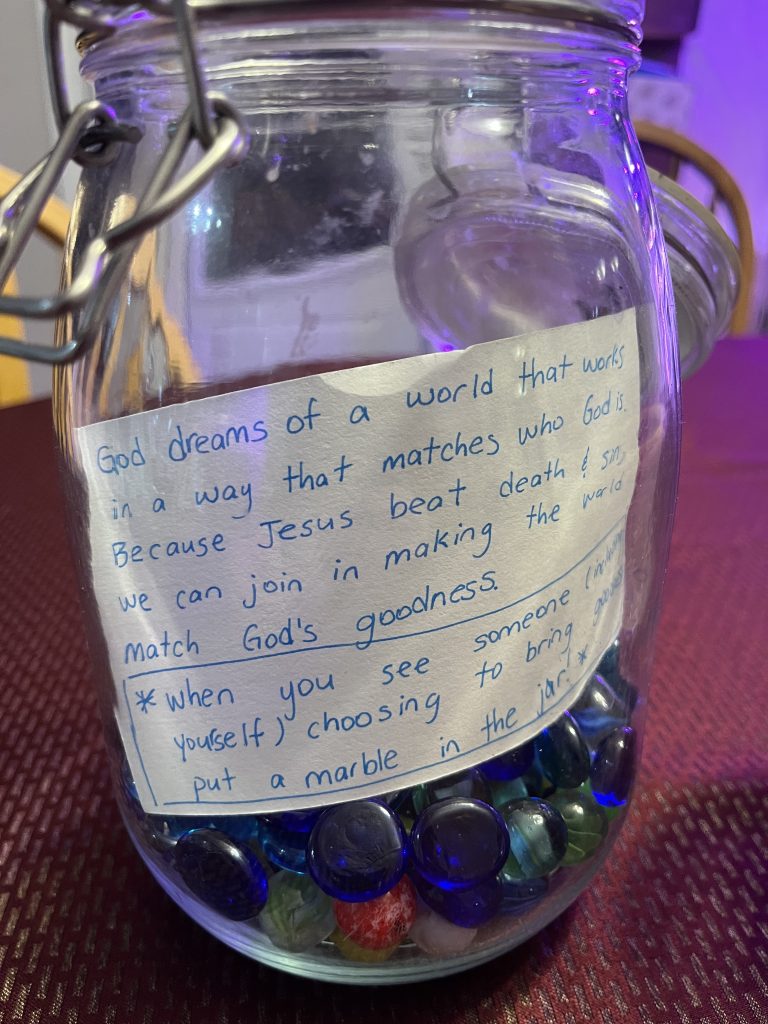 God dreams of a world that works
in a way that matches who God is.
Because Jesus beat death & sin,
we can join in making the world
match God's goodness.
* when you see someone (including
yourself) choosing to bring goodness
put a marble in the jar! *